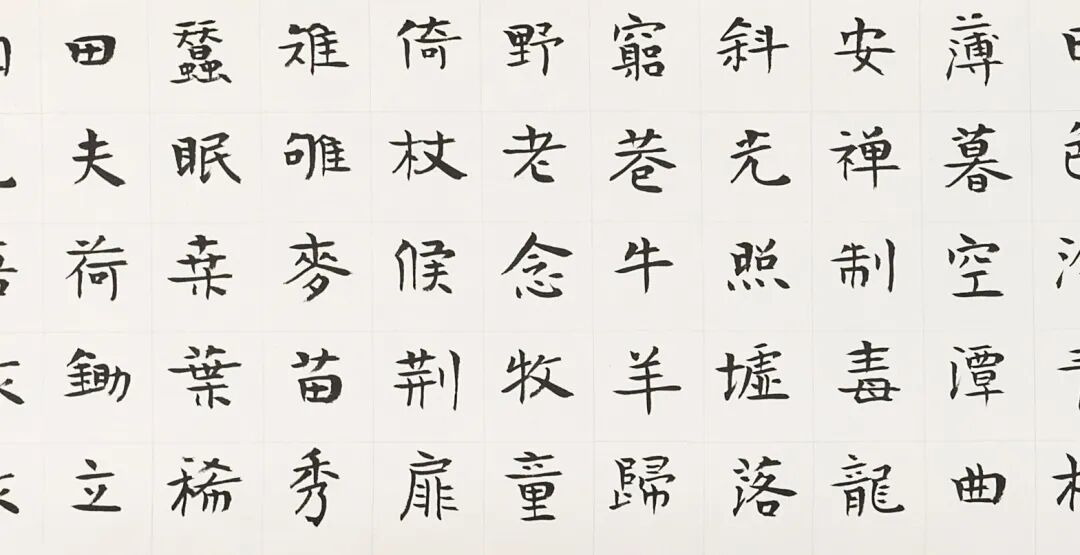 薄暮空潭曲
安禅制毒龍
斜光照墟落
窮巷牛羊歸
野老念牧童
倚杖候荆扉
雉雊麥苗秀
蠶眠桒葉稀
田夫荷鋤立